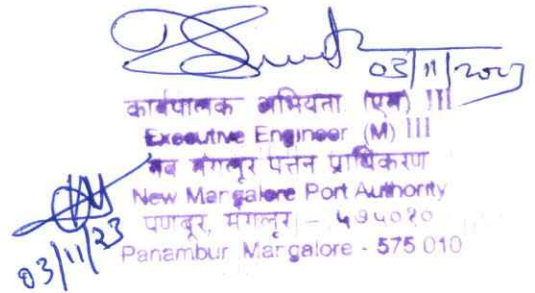 03/11/2023
कार्यपालक अभियंता (एम) III
Executive Engineer (M) III
नव मंगलूर पत्तन प्राधिकरण
New Mangalore Port Authority
पणंबूर, मंगलूर - ५७५०१०
Panambur Mangalore - 575 010
03/11/23